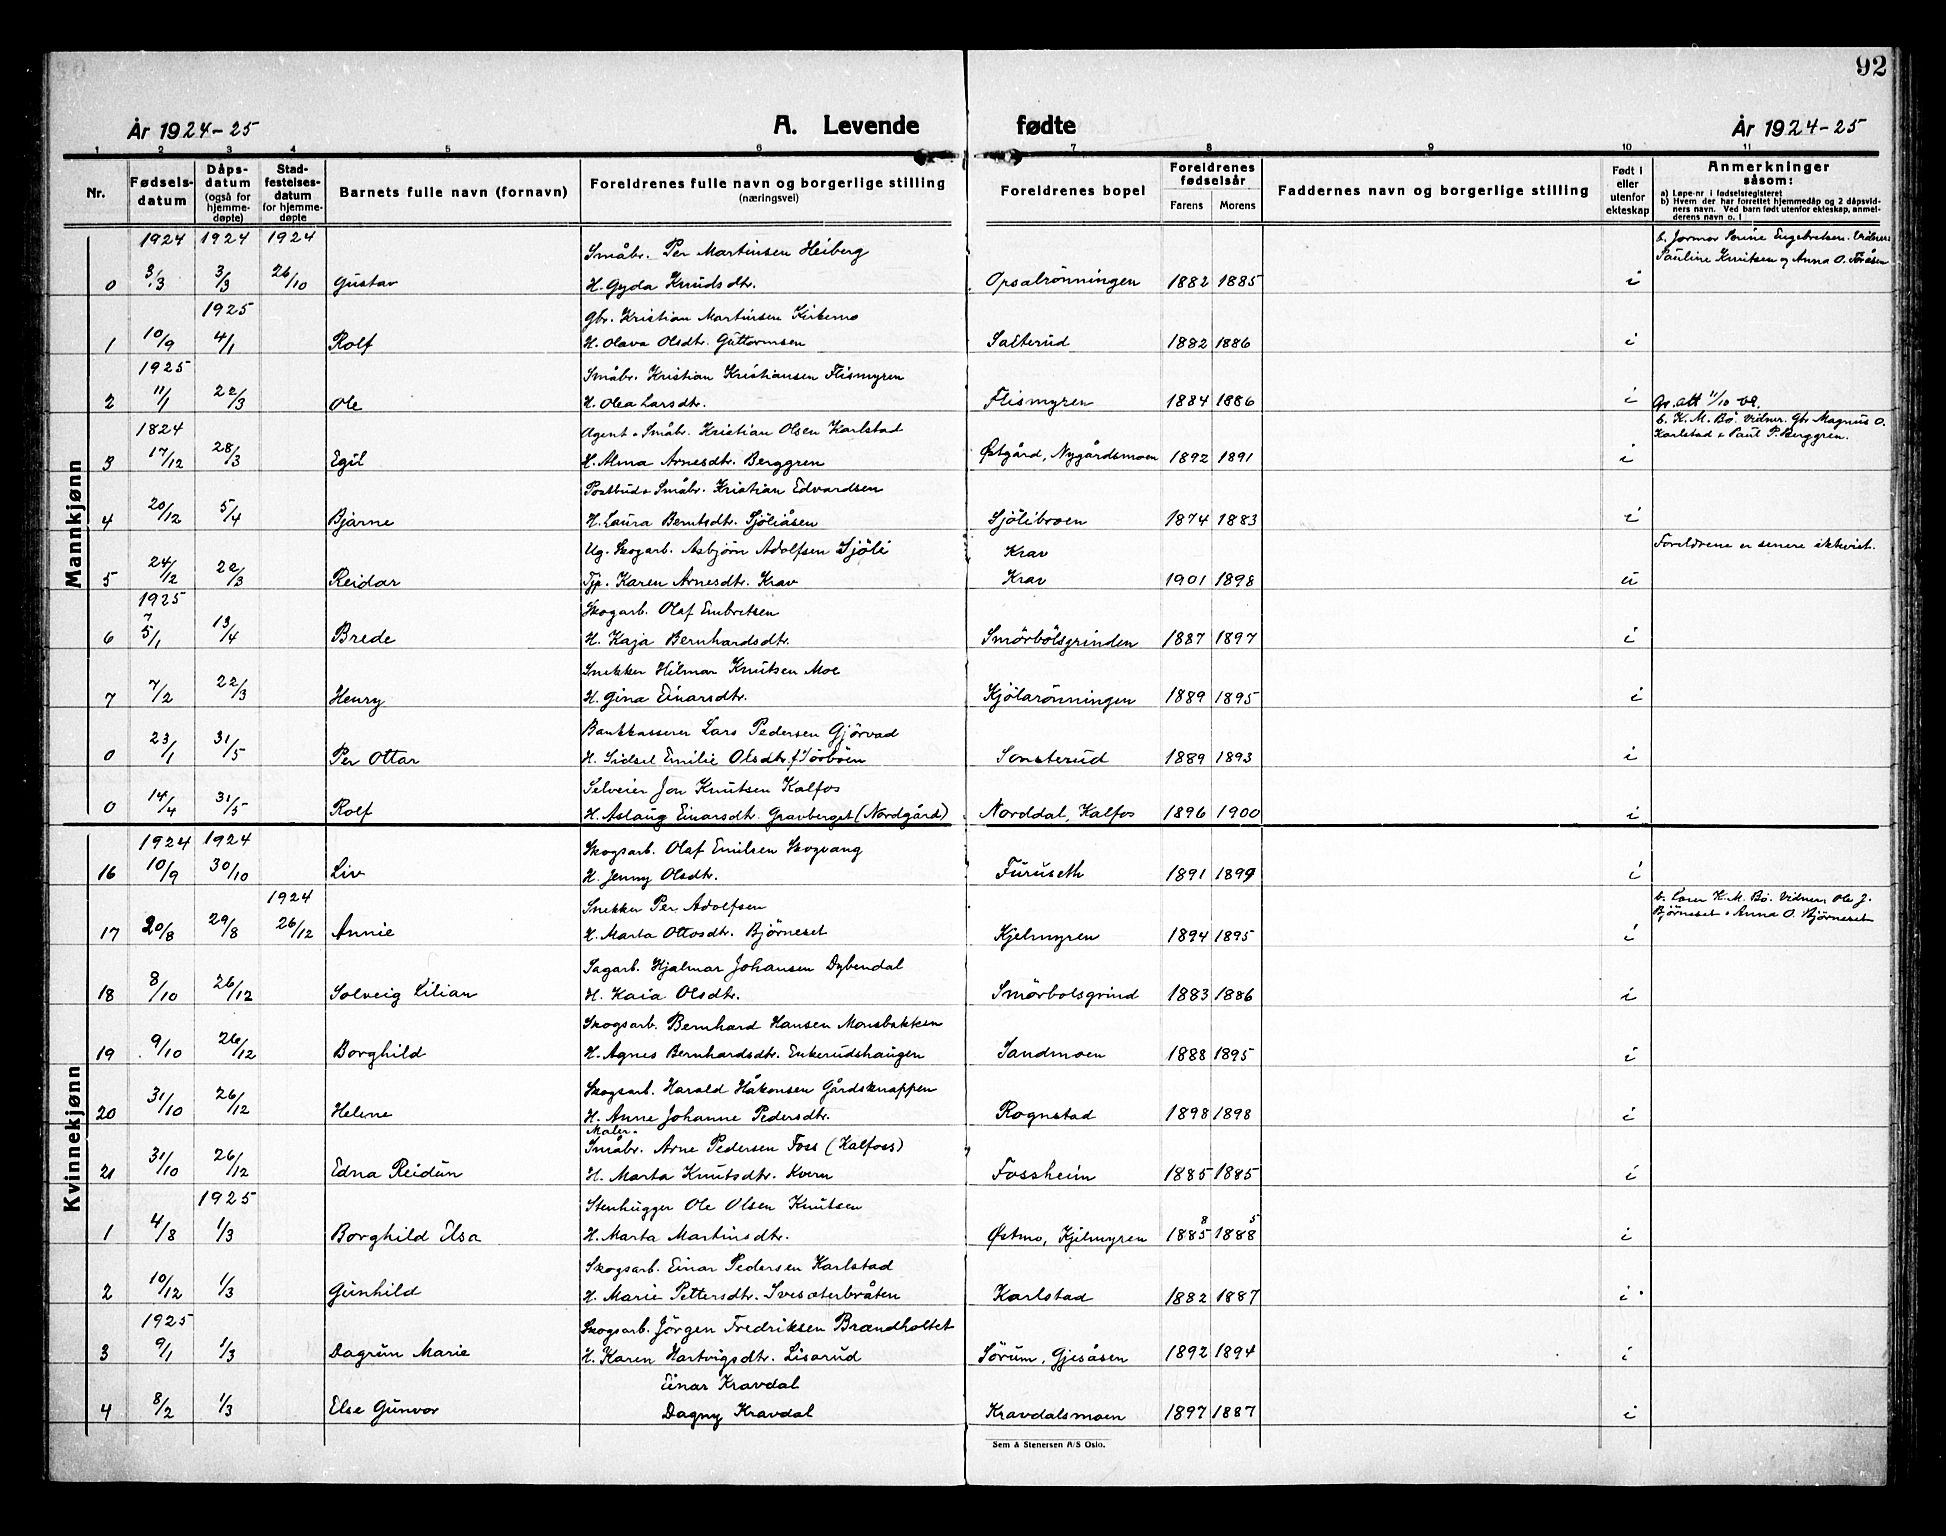 92
År 1924-25 A. Levende fødte År 1924-25
1 2 3 4 5 6 7 8 9 10 11
Nr. Fødsels-datum Dåps-datum (også for hjemme-døpte) Stad-festelses-datum for hjemme-døpte Barnets fulle navn (fornavn) Foreldrenes fulle navn og borgerlige stilling (næringsvei) Foreldrenes bopel Foreldrenes fødselsår Farens Morens Faddernes navn og borgerlige stilling Født i eller utenfor ekteskap Anmerkninger såsom: a) Løpe-nr i fødselsregisteret b) Hvem der har forrettet hjemmedåp og 2 dåpsvidners navn. Ved barn født utenfor ekteskap, anmelderens navn o. l
Mannkjønn
1924 1924 1924 Småbr. Per Martinsen Heiberg b. Jormor Serine Engebretsen. Vidner:
0 3/3 3/3 26/10 Gustav H. Gyda Knudsdtr. Opsalrönningen 1882 1885 i Pauline Knutsen og Anna O.
1925 Gbr. Kristian Martinsen Kirkemo
1 10/9 4/1 Rolf H. Olava Olsdtr. Guttormsen Salterud 1882 1886 i
1925 Småbr. Kristian Kristiansen Flismyren
2 11/1 22/3 Ole H. Olea Larsdtr. Flismyren 1884 1886 i att 11/10
1824 Agent & Småbr. Kristian Olsen Karlstad b. K. M. Bø. Vidner. Gbr Magnus O.
3 17/12 28/3 Egil H. Alma Arnesdtr. Berggren Østgård, Nygårdsmoen 1892 1891 i Karlstad & Paul P. Berggren.
Postbud & Småbr. Kristian Edvardsen
4 20/12 5/4 Bjarne H. Laura Berntsdtr. Sjöliåsen Sjölibroen 1874 1883 i
Ug. Skogarb. Asbjørn Adolfsen Sjöli Krav Foreldrene er senere ektevist.
5 24/12 22/3 Reidar Tjp. Karen Arnesdtr. Krav Krav 1901 1898 u
1925 Skogarb. Olaf Embretsen
6 5/1 13/4 Brede H. Kaja Bernhardsdtr. Smörbölsgrinden 1887 1897 i
Snekker Hilmar Knutsen Moe
7 7/2 22/3 Henry H. Gina Einarsdtr. Kjölarönningen 1889 1895 i
Bankkasserer Lars Pedersen Gjörvad
0 23/1 31/5 Per Ottar H. Sidsel Emilie Olsdtr. f. Sonsterud 1889 1893 i
Selveier Jon Knutsen Kalfos
0 14/4 31/5 Rolf H. Aslaug Einarsdtr. Gravberget (Nordgård) Norddal, Kalfos 1896 1900 i
Kvinnekjønn
1924 1924 Skogsarb. Olaf Emilsen Skogvang
16 10/9 30/10 Liv H. Jenny Olsdtr. Furuseth 1891 1899 i
1924 Snekker Per Adolfsen b. Lærer K. M. Bø. Vidner, Ole J.
17 20/8 29/8 26/12 Annie H. Marta Ottosdtr. Bjørneset Kjelmyren 1894 1895 i Bjørneset & Anna O. Bjørneset
Sagarb. Hjalmar Johansen Dybendal
18 8/10 26/12 Solveig Lilian H. Kaia Olsdtr. Smörbolsgrind 1883 1886 i
Skogsarb. Bernhard Hansen Monsbakken
19 9/10 26/12 Borghild H. Agnes Bernhardsdtr. Enkerudshaugen Sandmoen 1888 1895 i
Skogsarb. Harald Håkonsen Gårdsknappen
20 31/10 26/12 Helene H. Anne Johanne Pedersdtr. Rognstad 1898 1898 i
Maler &
Småbr. Arne Pedersen Foss (Kalfoss)
21 31/10 26/12 Edna Reidun H. Marta Knutsdtr. Kvern Fossheim 1885 1885 i
1925 Stenhugger Ole Olsen Knutsen 8 5
1 4/8 1/3 Borghild Elsa H. Marta Martinsdtr. Østmo, Kjelmyren 1885 1888 i
Skogsarb. Einar Pedersen Karlstad
2 10/12 1/3 Gunhild H. Marie Pettersdtr. Svesæterbråten Karlstad 1882 1887 i
1925 Skogsarb. Jörgen Fredriksen Brandholtet
3 9/1 1/3 Dagrun Marie H. Karen Hartvigsdtr. Lisarud Sörum, Gjesåsen 1892 1894 i
Einar Kravdal
4 8/2 1/3 Else Gunvor Dagny Kravdal Kravdalsmoen 1897 1887 i
Sem & Stenersen A/S Oslo.